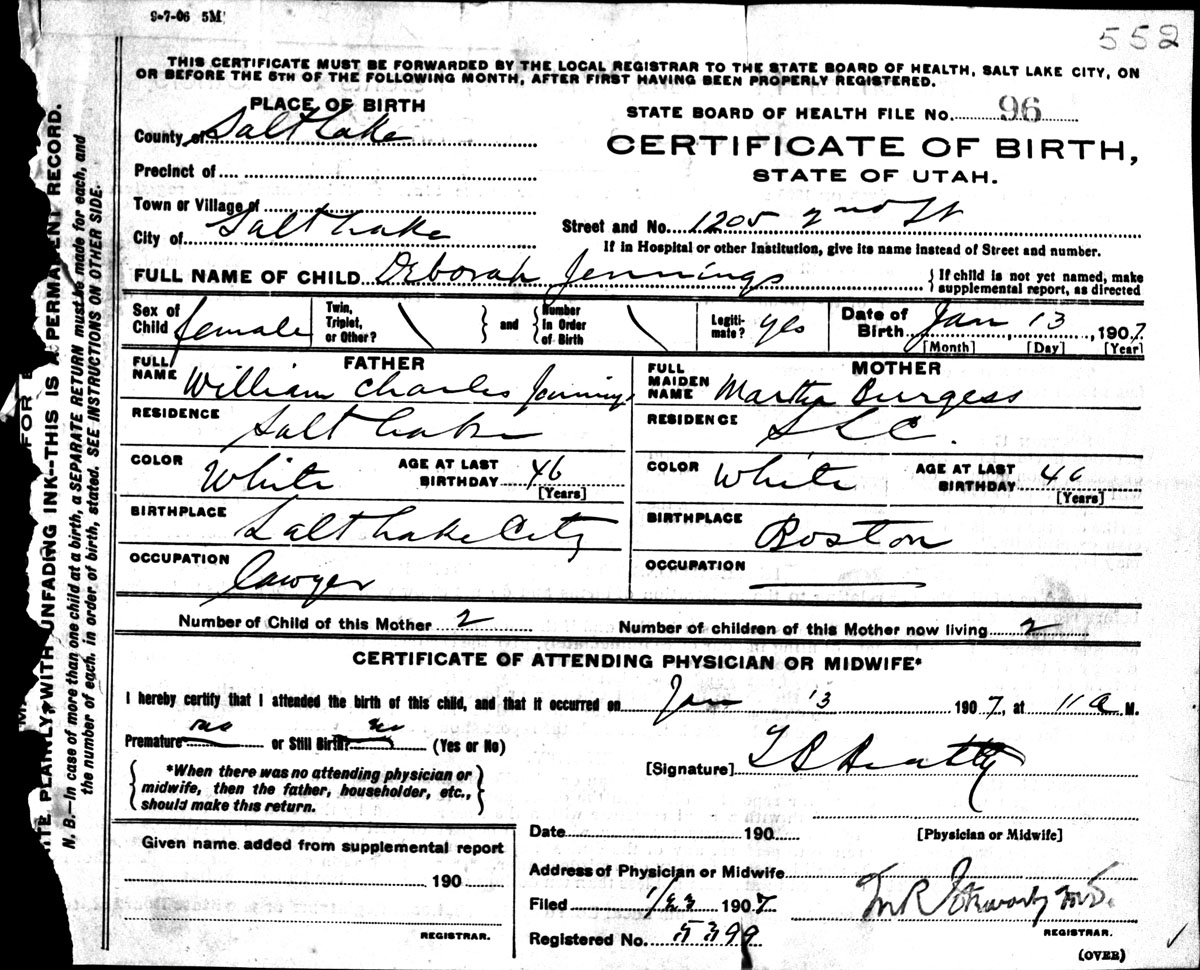 9-7-06 5M
552
THIS CERTIFICATE MUST BE FORWARDED BY THE LOCAL REGISTRAR TO THE STATE BOARD OF HEALTH, SALT LAKE CITY, ON
OR BEFORE THE 5TH OF THE FOLLOWING MONTH, AFTER FIRST HAVING BEEN PROPERLY REGISTERED.
PLACE OF BIRTH
County of Salt Lake
Precinct of
Town or Village of
City of Salt Lake
STATE BOARD OF HEALTH FILE No. 96
CERTIFICATE OF BIRTH,
STATE OF UTAH.
Street and No. 1205 2nd St
If in Hospital or other Institution, give its name instead of Street and number.
FULL NAME OF CHILD Deborah Jennings
{ If child is not yet named, make
supplemental report, as directed
Sex of Child female
Twin, Triplet, or Other? \ } and { Number in Order of Birth \
Legitimate? yes
Date of Birth Jan 13, 1907.
[Month] [Day] [Year]
FATHER
FULL NAME William Charles Jennings
RESIDENCE Salt Lake
COLOR White AGE AT LAST BIRTHDAY 46
[Years]
BIRTHPLACE Salt Lake City
OCCUPATION Lawyer
MOTHER
FULL MAIDEN NAME Martha Burgess
RESIDENCE SLC.
COLOR White AGE AT LAST BIRTHDAY 40
[Years]
BIRTHPLACE Boston
OCCUPATION
Number of Child of this Mother 2 Number of children of this Mother now living 2
CERTIFICATE OF ATTENDING PHYSICIAN OR MIDWIFE*
I hereby certify that I attended the birth of this child, and that it occurred on Jan 13 1907, at 11 a M.
Premature no or Still Birth? no (Yes or No)
{ *When there was no attending physician or
midwife, then the father, householder, etc.,
should make this return. }
[Signature] T B Beatty
[Physician or Midwife]
Given name added from supplemental report
190
REGISTRAR.
Date 190
Address of Physician or Midwife
Filed 1/23 1907
Registered No. 5399
REGISTRAR.
(OVER)
PLAINLY, WITH UNFADING INK—THIS IS A PERMANENT RECORD.
N. B.—In case of more than one child at a birth, a SEPARATE RETURN must be made for each, and
the number of each, in order of birth, stated. SEE INSTRUCTIONS ON OTHER SIDE.